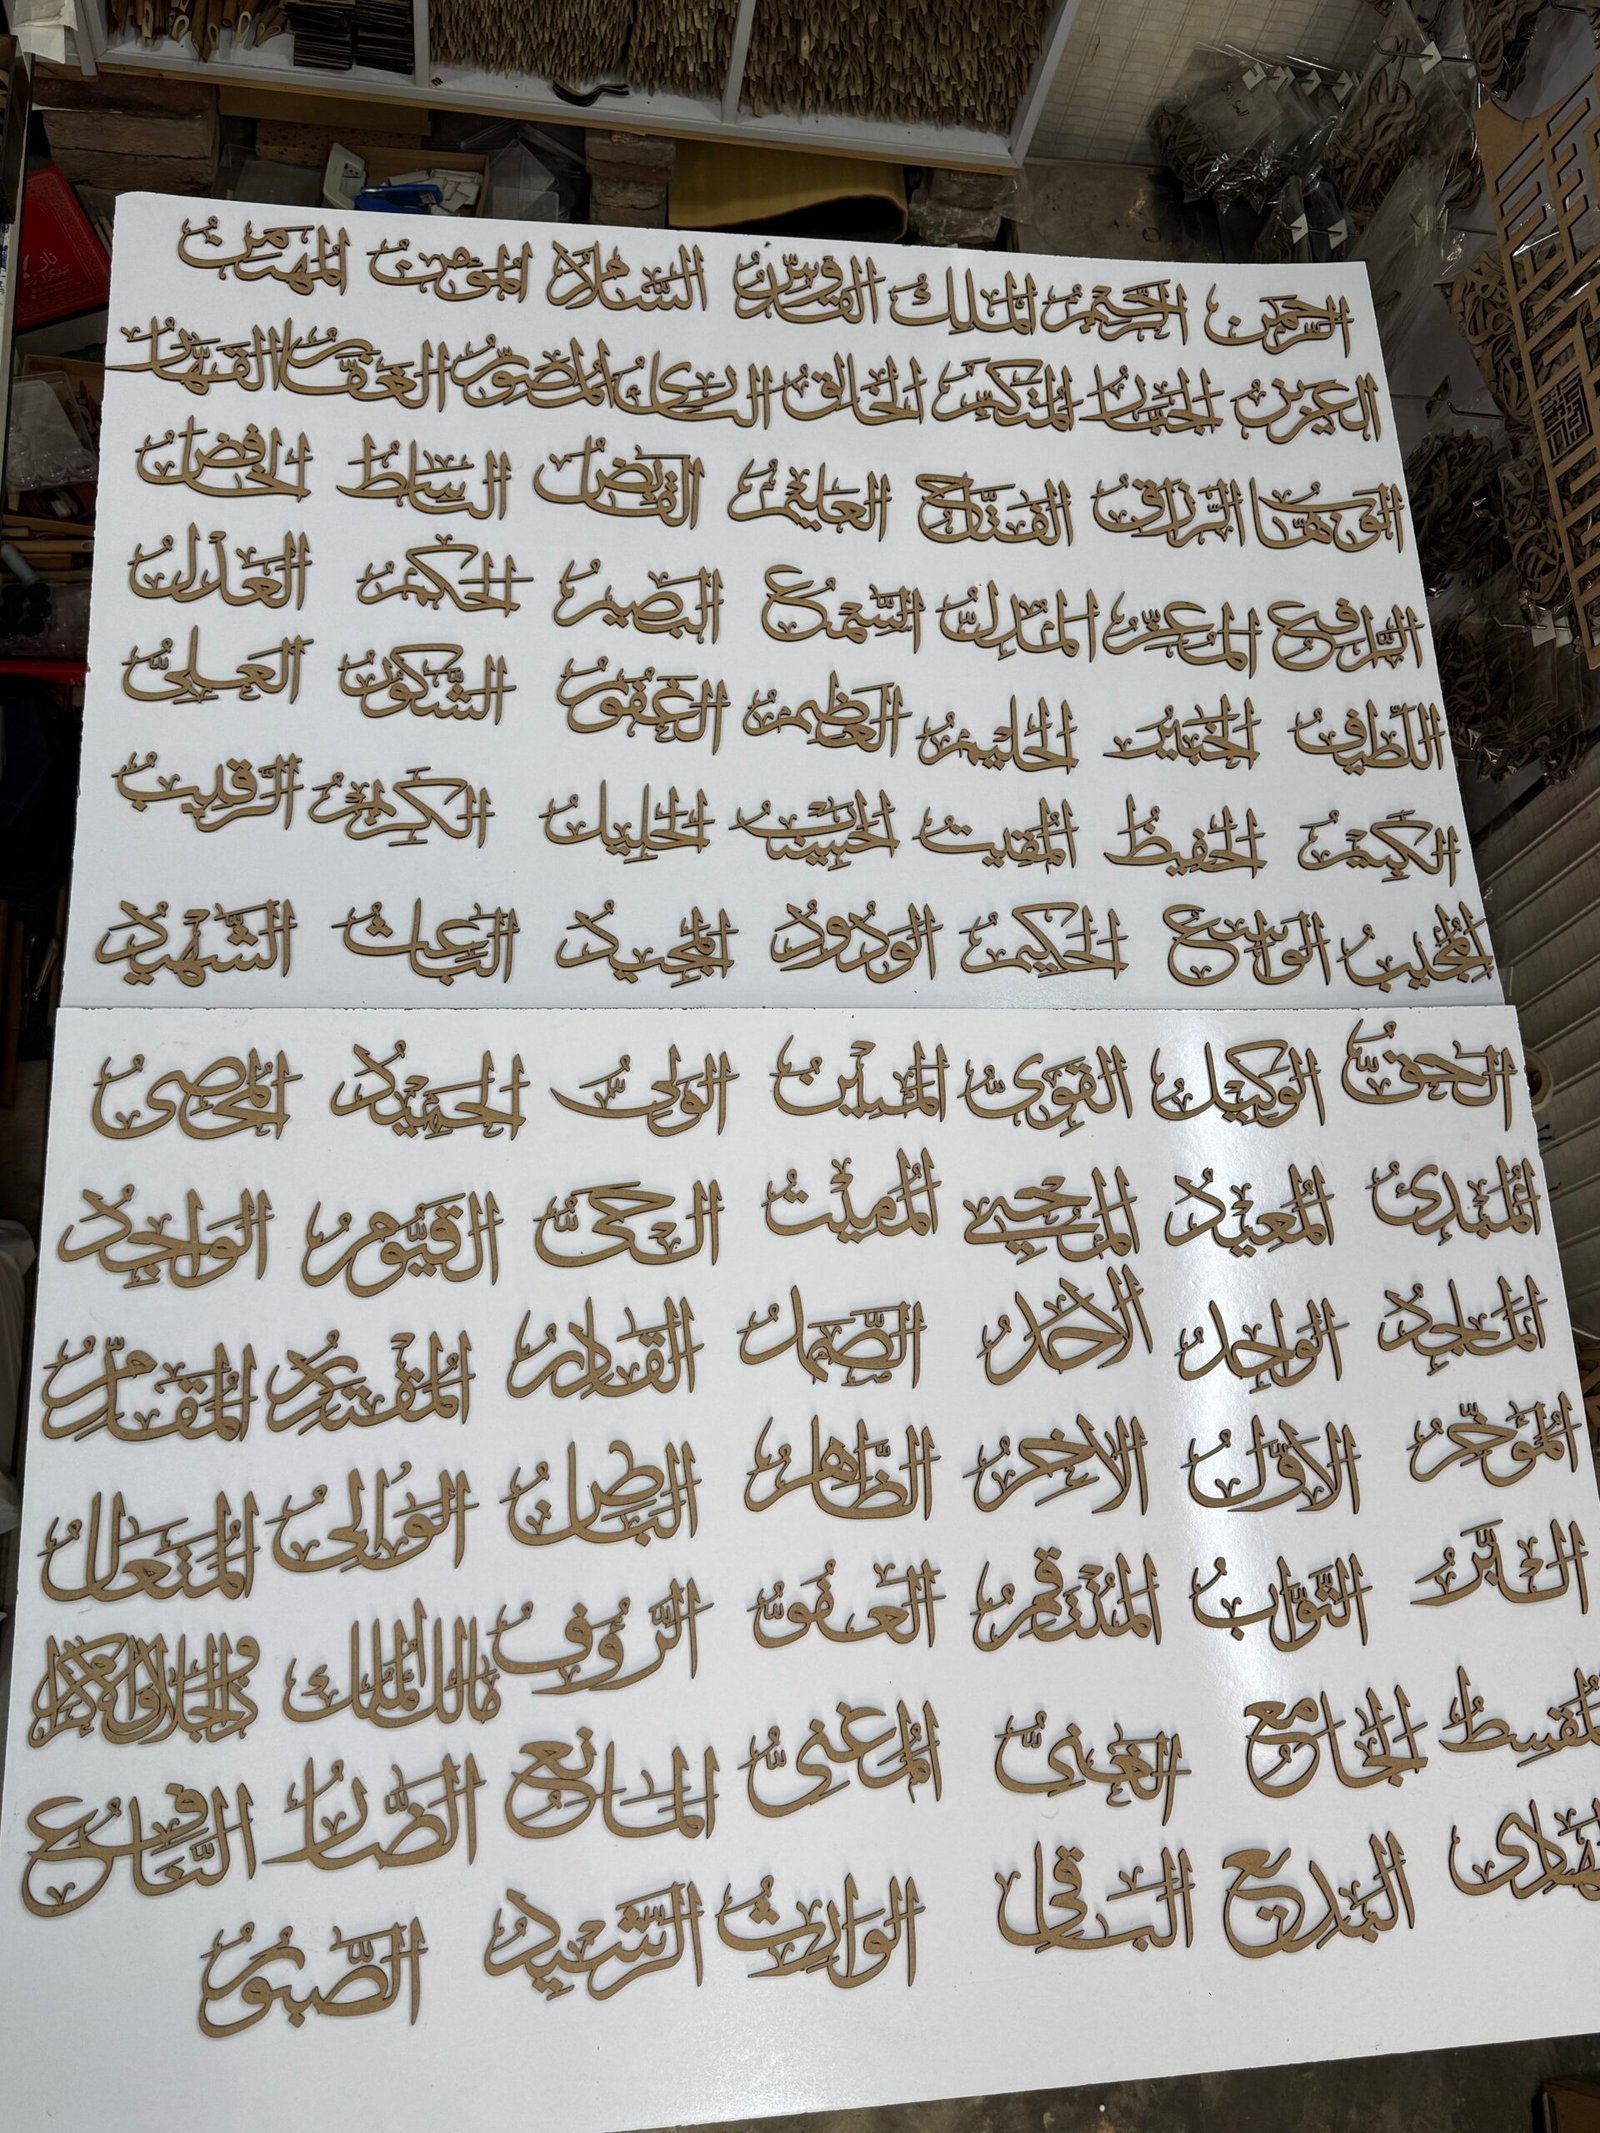 الرَّحْمٰنُ الرَّحِيْمُ الْمَلِكُ الْقُدُّوْسُ السَّلَامُ الْمُؤْمِنُ الْمُهَيْمِنُ
الْعَزِيْزُ الْجَبَّارُ الْمُتَكَبِّرُ الْخَالِقُ الْبَارِئُ الْمُصَوِّرُ الْغَفَّارُ الْقَهَّارُ
الْوَهَّابُ الرَّزَّاقُ الْفَتَّاحُ الْعَلِيْمُ الْقَابِضُ الْبَاسِطُ الْخَافِضُ
الرَّافِعُ الْمُعِزُّ الْمُذِلُّ السَّمِيْعُ الْبَصِيْرُ الْحَكَمُ الْعَدْلُ
اللَّطِيْفُ الْخَبِيْرُ الْحَلِيْمُ الْعَظِيْمُ الْغَفُوْرُ الشَّكُوْرُ الْعَلِيُّ
الْكَبِيْرُ الْحَفِيْظُ الْمُقِيْتُ الْحَسِيْبُ الْجَلِيْلُ الْكَرِيْمُ الرَّقِيْبُ
الْمُجِيْبُ الْوَاسِعُ الْحَكِيْمُ الْوَدُوْدُ الْمَجِيْدُ الْبَاعِثُ الشَّهِيْدُ
الْحَقُّ الْوَكِيْلُ الْقَوِىُّ الْمَتِيْنُ الْوَلِىُّ الْحَمِيْدُ الْمُحْصِىُ
الْمُبْدِئُ الْمُعِيْدُ الْمُحْيِىْ الْمُمِيْتُ الْحَىُّ الْقَيُّوْمُ الْوَاجِدُ
الْمَاجِدُ الْوَاحِدُ الْاَحَدُ الصَّمَدُ الْقَادِرُ الْمُقْتَدِرُ الْمُقَدِّمُ
الْمُؤَخِّرُ الْاَوَّلُ الْاٰخِرُ الظَّاهِرُ الْبَاطِنُ الْوَالِىُ الْمُتَعَالُ
الْبَرُّ التَّوَّابُ الْمُنْتَقِمُ الْعَفُوُّ الرَّؤُفُ مَالِكُ الْمُلْكِ ذوالجلال والاكرام
الْمُقْسِطُ الْجَامِعُ الْغَنِىُّ الْمُغْنِىُّ الْمَانِعُ الضَّارُّ النَّافِعُ
الْهَادِى الْبَدِيْعُ الْبَاقِى الْوَارِثُ الرَّشِيْدُ الصَّبُوْرُ